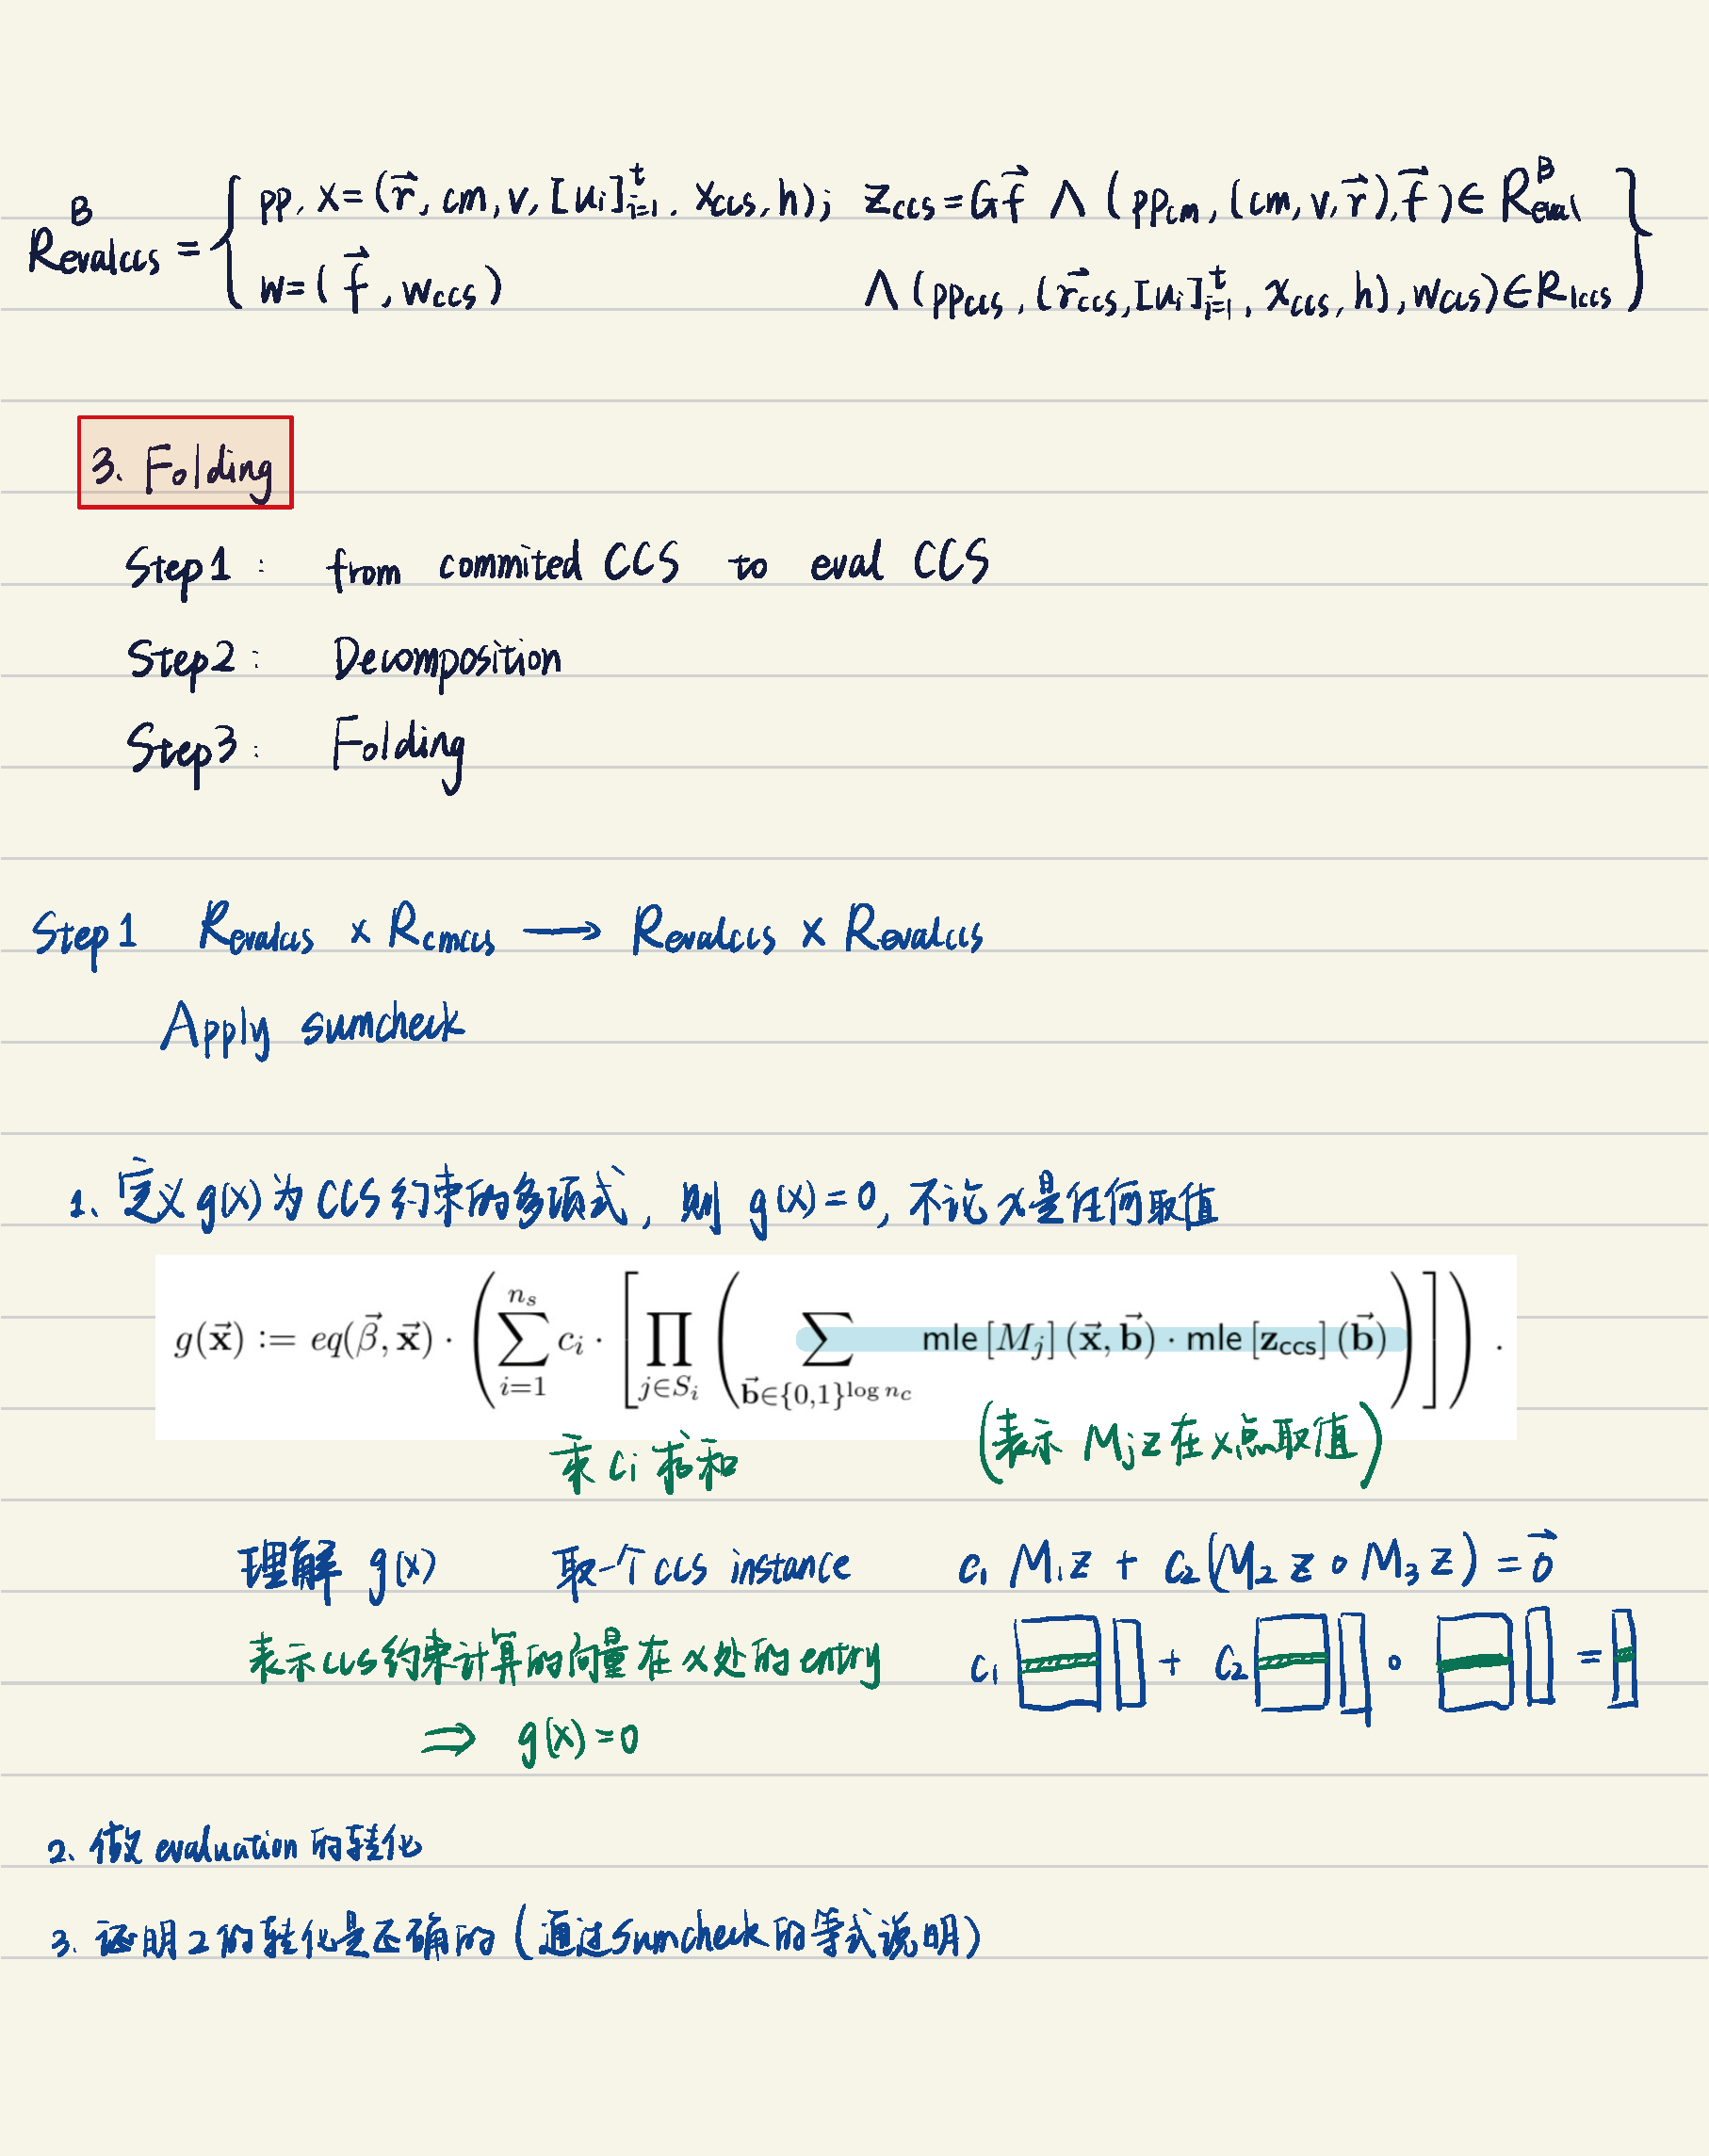 R^B_evalccs = { pp, x = (r⃗, cm, v, [u_i]^t_{i=1}, x_ccs, h); z_ccs = Gf⃗ ∧ (pp_cm, (cm, v, r⃗), f⃗) ∈ R^B_eval
w = (f⃗, w_ccs) ∧ (pp_ccs, (r⃗_ccs, [u_i]^t_{i=1}, x_ccs, h), w_ccs) ∈ R_lccs }
3. Folding
Step1: from commited CCS to eval CCS
Step2: Decomposition
Step3: Folding
Step1 R_evalccs × R_cmccs → R_evalccs × R_evalccs
Apply sumcheck
1、定义 g(x) 为 CCS 约束的多项式, 则 g(x)=0, 不论 x 是任何取值
g(x⃗) := eq(β⃗, x⃗) · ( ∑_{i=1}^{n_s} c_i · [ ∏_{j∈S_i} ( ∑_{b⃗∈{0,1}^{log n_c}} mle [M_j] (x⃗, b⃗) · mle [z_ccs] (b⃗) ) ] ) .
乘 c_i 求和 (表示 M_j z 在 x 点取值)
理解 g(x) 取一个 ccs instance c₁ M₁z + c₂(M₂z ∘ M₃z) = 0⃗
表示 ccs 约束计算的向量在 x 处的 entry c₁ + c₂ ∘ =
⇒ g(x)=0
2. 做 evaluation 的转化
3. 证明 2 的转化是正确的 (通过 sumcheck 的等式说明)